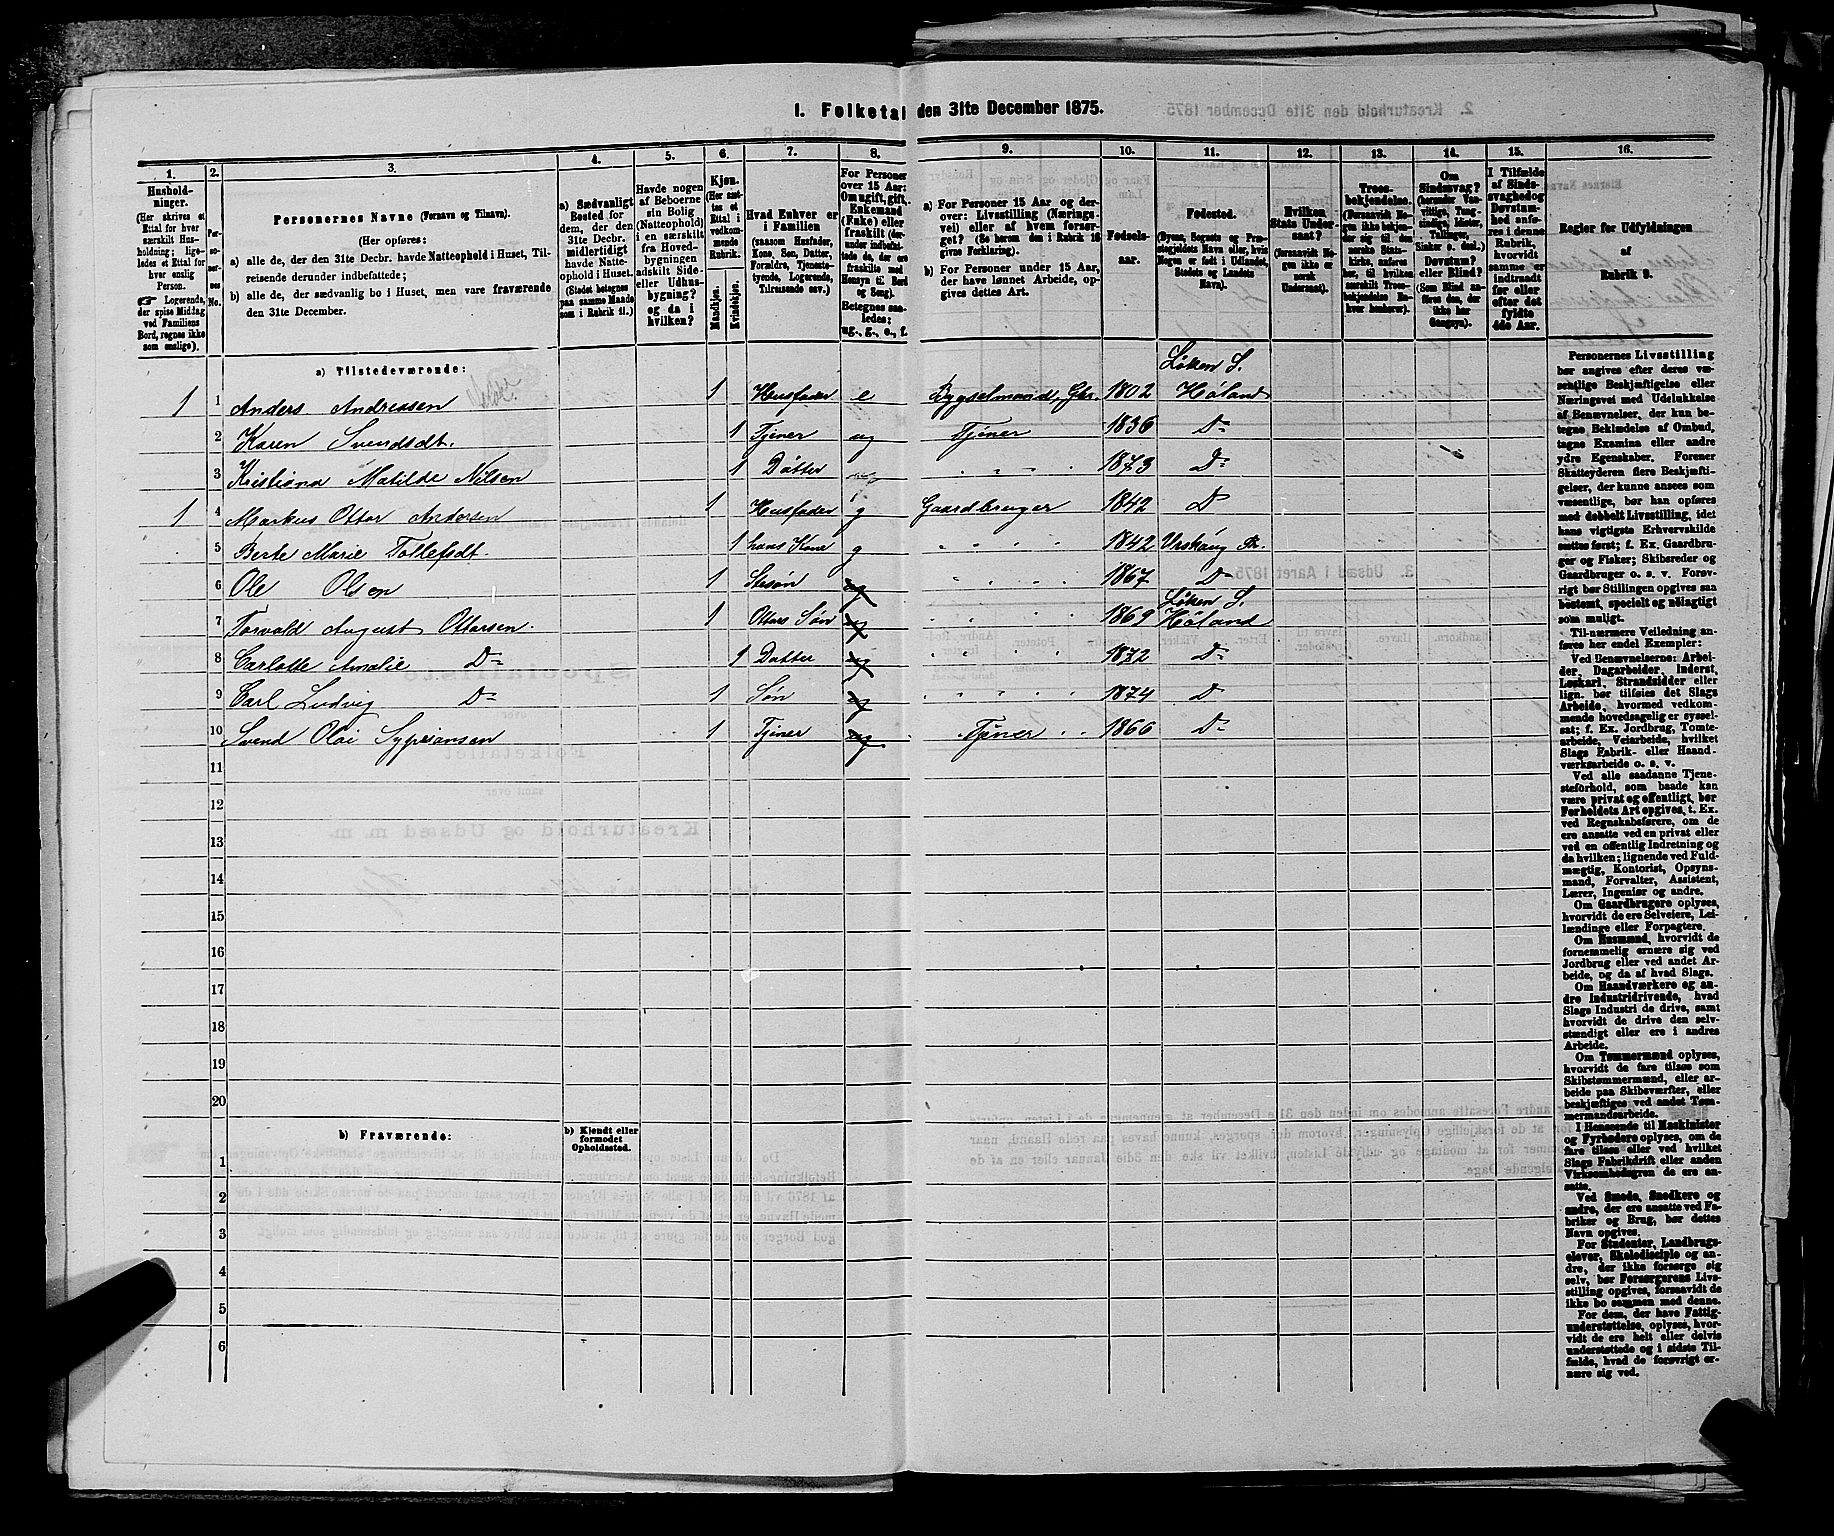 1. Folketal den 31te December 1875.
1. 2. 3. 4. 5. 6. 7. 8. 9. 10. 11. 12. 13. 14. 15. 16.
Hushold-
ninger.
(Her skrives et
Ettal for hver
særskilt Hus-
holdning; lige-
ledes et Ettal for
hver enslig
Person.
☞ Logerende,
der spise Middag
ved Familiens
Bord, regnes ikke
som enslige).
Per-
so-
ner-
nes
No.
Personernes Navne (Fornavn og Tilnavn).
(Her opføres:
a) alle de, der den 31te Decbr. havde Natteophold i Huset, Til-
reisende derunder indbefattede;
b) alle de, der sædvanlig bo i Huset, men vare fraværende
den 31te December.
a) Sædvanligt
Bosted for
dem, der den
31te Decbr.
midlertidigt
havde Natte-
ophold i Huset.
(Stedet betegnes
paa samme Maade
som i Rubrik 11.)
Havde nogen
af Beboerne
sin Bolig
(Natteophold)
i en særskilt
fra Hoved-
bygningen
adskilt Side-
eller Udhus-
bygning?
og da i
hvilken?
Kjøn.
(Her sæt-
tes et
Ettal i
vedkom-
mende
Rubrik.
Mandkjøn.
Kvindekjøn.
Hvad Enhver er
i Familien
(saasom Husfader,
Kone, Søn, Datter,
Forældre, Tjeneste-
tyende, Logerende,
Tilreisende osv.)
For Personer
over 15 Aar:
Om ugift, gift,
Enkemand
(Enke) eller
fraskilt (der-
under indbefat-
tede de, der ere
fraskilte med
Hensyn til Bord
og Seng).
Betegnes saa-
ledes:
ug., g., e., f.
a) For Personer 15 Aar og der-
over: Livsstilling (Nærings-
vei) eller af hvem forsør-
get? (Se herom den i Rubrik 16
givne Forklaring).
b) For Personer under 15 Aar,
der have lønnet Arbeide, op-
gives dettes Art.
Fødsels-
aar.
Fødested.
(Byens, Sognets og Præ-
stegjeldets Navn eller, hvis
Nogen er født i Udlandet,
Stedets og Landets
Navn).
Hvilken
Stats Under-
saat?
(forsaavidt No-
gen ikke er
norsk
Undersaat).
Troes-
bekjendelse.
(Forsaavidt No-
gen ikke bekjen-
der sig til den
norske Stats-
kirke, anføres
her, til hvilken
særskilt Troes-
bekjendelse En-
hver henhører).
Om
Sindssvag?
(herunder Van-
vittige, Tung-
sindige, Idioter,
Tullinger,
Sinker o. desl.)
Døvstum?
eller Blind?
(Som Blind an-
føres den, der
ikke har
Gangsyn).
I Tilfælde
af Sinds-
svaghed og
Døvstum-
hed anfø-
res i denne
Rubrik,
hvorvidt
samme er
indtraadt
før eller
efter det
fyldte
4de Aar.
Regler for Udfyldningen
af
Rubrik 9.
a) Tilstedeværende:
1 1 Anders Andreasen 1 Husfader e Bygselmand, Gbr. 1802 Løken S. Høland
2 Karen Svendsdt. 1 Tjener ug Tjener 1836 Do
3 Kristiana Matilde Nilsen 1 Datter " " " 1873 Do
1 4 Markus Ottar Andersen 1 Husfader g Gaardbruger 1842 Do
5 Berte Marie Tollefsdt. 1 hans Kone g " " " " 1842 Urskoug Pr.
6 Ole Olsen 1 Stesøn ug " " " " 1867 Do
7 Torvald August Ottersen 1 Ottars Søn ug " " " " 1869 Løken S. Høland
8 Carlotte Amalie Do 1 Datter ug " " " " 1872 Do
9 Carl Ludvig Do 1 Søn ug " " " " 1874 Do
10 Svend Olai Sypriansen 1 Tjener ug Tjener 1866 Do
11
12
13
14
15
16
17
18
19
20
b) Fraværende:
b) Kjendt eller
formodet
Opholdssted.
1
2
3
4
5
6
Personernes Livsstilling
bør angives efter deres væ-
sentlige Beskjæftigelse eller
Næringsvei med Udelukkelse
af Benævnelser, der kun be-
tegne Beklædelse af Ombud,
tagne Examina eller andre
ydre Egenskaber. Forener
Skatteyderen flere Beskjæfti-
gelser, der kunne ansees som
væsentlige, bør han opføres
med dobbelt Livsstilling, idet
hans vigtigste Erhvervskilde
sættes først; f. Ex. Gaardbru-
ger og Fisker; Skibsreder og
Gaardbruger o. s. v. Forøv-
rigt bør Stillingen opgives saa
bestemt, specielt og nøiagtigt
som muligt.
Til nærmere Veiledning an-
føres her endel Exempler:
Ved Benævnelserne: Arbei-
der, Dagarbeider, Inderst,
Løskarl, Strandsidder eller
lign. bør tilføies det Slags
Arbeide, hvormed vedkom-
mende hovedsagelig er syssel-
sat; f. Ex. Jordbrug, Tomte-
arbeide, Veiarbeide, hvilket
Slags Fabrik- eller Haand-
værksarbeide o. s. v.
Ved alle saadanne Tjene-
steforhold, som baade kan
være privat og offentligt, bør
Forholdets Art opgives, t. Ex.
ved Regnskabsførere, om de
ere ansatte ved en privat eller
ved en offentlig Indretning og
da hvilken; lignende ved Fuld-
mægtig, Kontorist, Opsyns-
mand, Forvalter, Assistent,
Lærer, Ingeniør og andre.
Om Gaardbrugere oplyses,
hvorvidt de ere Selveiere, Lei-
lændinge eller Forpagtere.
Om Husmænd, hvorvidt de
fornemmelig ernære sig ved
Jordbrug eller ved andet Ar-
beide, og da af hvad Slags.
Om Haandværkere og an-
dre Industridrivende, hvad
Slags Industri de drive, samt
hvorvidt de drive den selv-
stændigt eller ere i andres
Arbeide.
Om Tømmermænd oplyses,
hvorvidt de fare tilsøs som
Skibstømmermænd, eller ar-
beide paa Skibsværfter, eller
beskjæftiges ved andet Tøm-
mermandsarbeide.
I Henseende til Maskinister
og Fyrbødere oplyses, om de
fare tilsøs eller ved hvilket
Slags Fabrikdrift eller anden
Virksomhedsgren de ere an-
satte.
Ved Smede, Snedkere og
andre, der ere ansatte ved Fa-
briker og Brug, bør dettes
Navn opgives.
For Studenter, Landbrugs-
elever, Skoledisciple og an-
dre, der ikke forsørge sig
selv, bør Forsørgerens Livs-
stilling opgives, forsaavidt de
ikke bo sammen med denne.
For dem, der have Fattig-
understøttelse, oplyses, hvor-
vidt de ere helt eller delvis
understøttede og i sidste Til-
fælde, hvad de forøvrigt er-
nære sig ved.